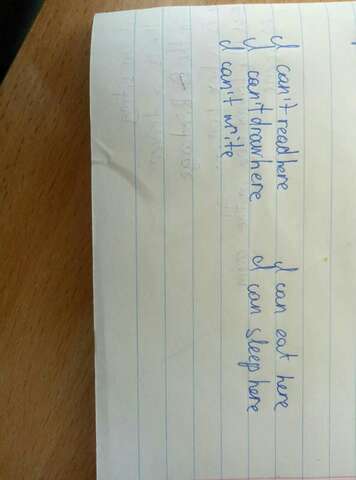 I can't read here
I can't draw here
I can't write
I can eat here
I can sleep here